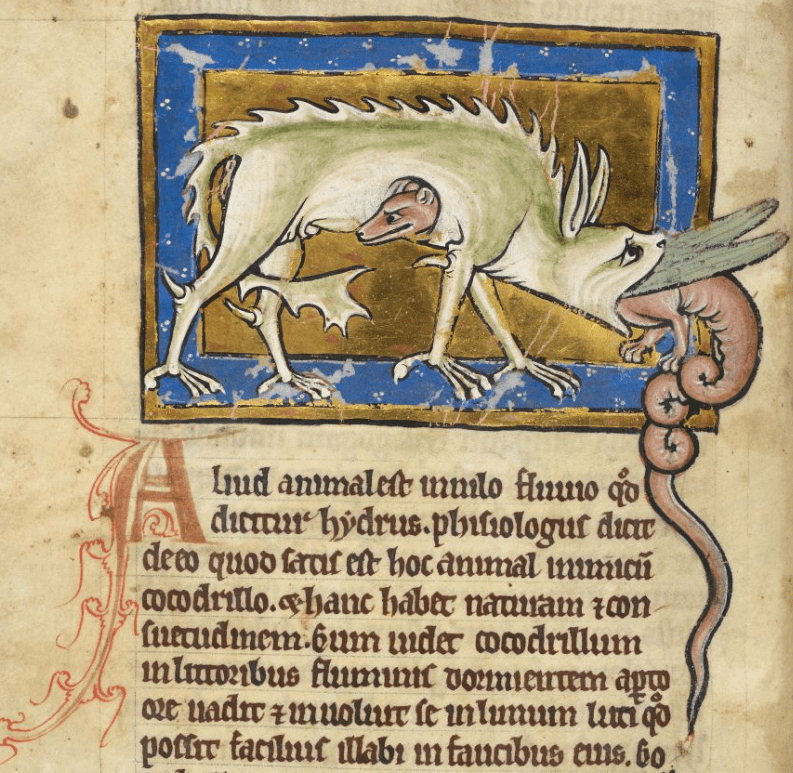 Aliud animal est in nilo fluuio qd̊
dicitur hẏdrus. phisiologus dicit
de eo quod satis est hoc animal inimicū
cocodrillo. & hanc habet naturam ⁊ con
suetudinem. Cum uidet cocodrillum
in littoribus fluminis dormientem apto
ore uadit ⁊ inuoluit se in limum luti qͦ
possit facilius illabi in faucibus eius. Co